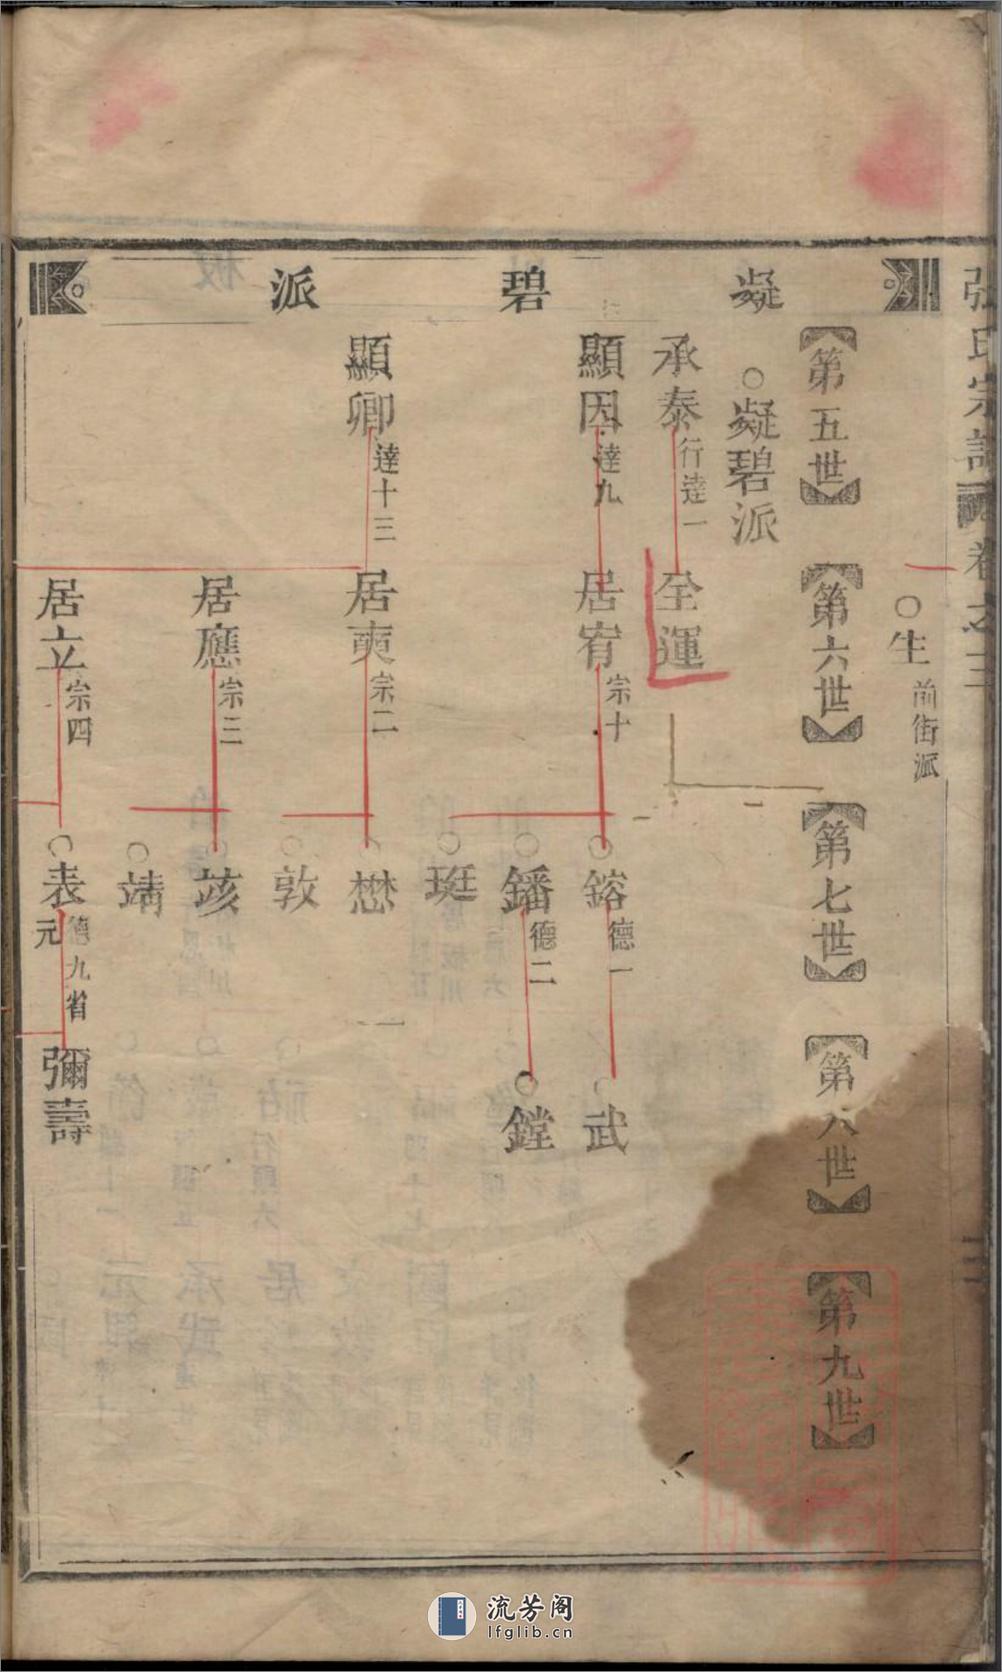 張氏宗譜 卷之三
生 前街派
凝碧派
第五世
第六世
第七世
第八世
第九世
○凝碧派
承泰 行逹一
全運
顯因 逹九
居宥 宗十
○鎔 德一
○武
○鐇 德二
○鏜
○珽
顯卿 逹十三
居奭 宗二
○懋
○敦
居應 宗三
○䇋
○靖
居立 宗四
○表 德九省元
彌壽
流芳阁
lfglib.cn